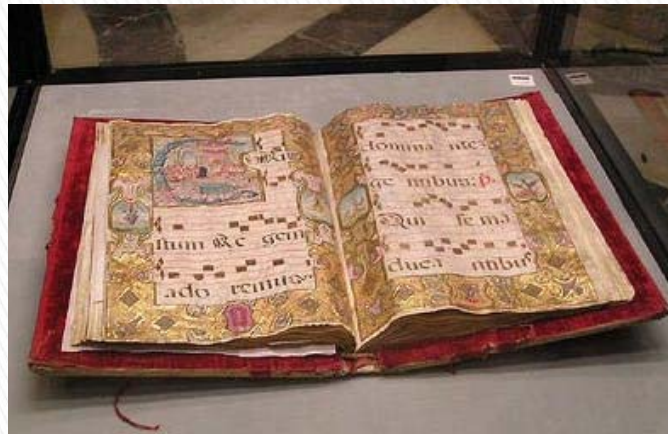 stum Re gem
ado remus,
domina ntez
ge ntibus: p.
Qui se ma
duca ntibus